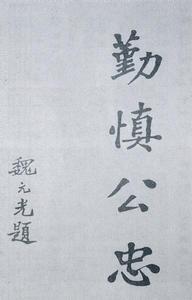 勤慎公忠
魏元光題